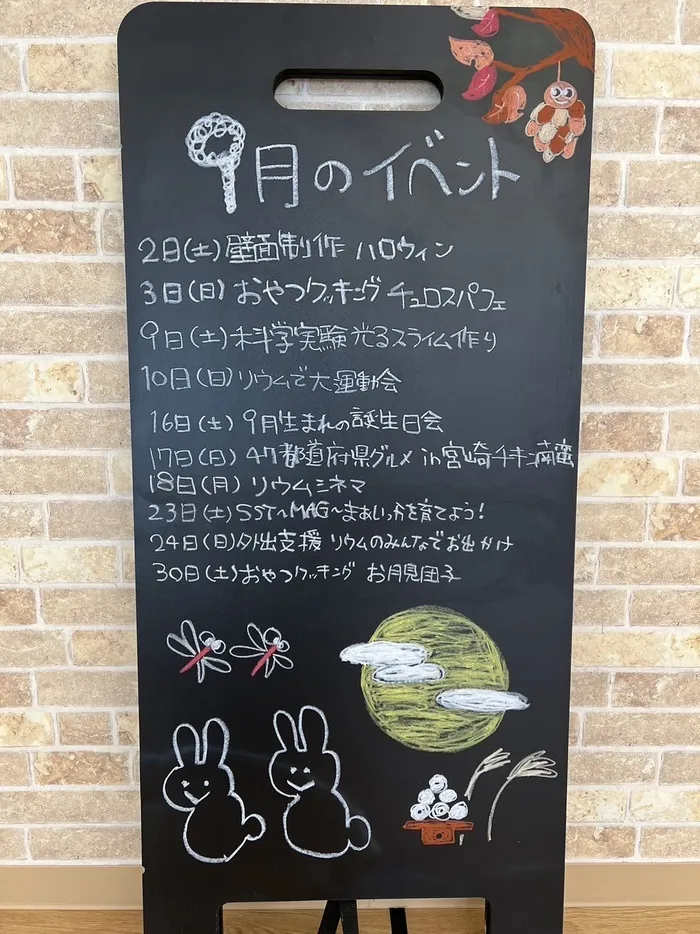 9月のイベント
2日(土)壁面制作 ハロウィン
3日(日)おやつクッキング チュロスパフェ
9日(土)科学実験 光るスライム作り
10日(日)リウムで大運動会
16日(土) 9月生まれの誕生日会
17日(日) 47都道府県グルメ in宮崎チキン南蛮
18日(月) リウムシネマ
23日(土)SST~MAG~まぁいっかを育てよう!
24日(日)外出支援 リウムのみんなでお出かけ
30日(土)おやつクッキング お月見団子